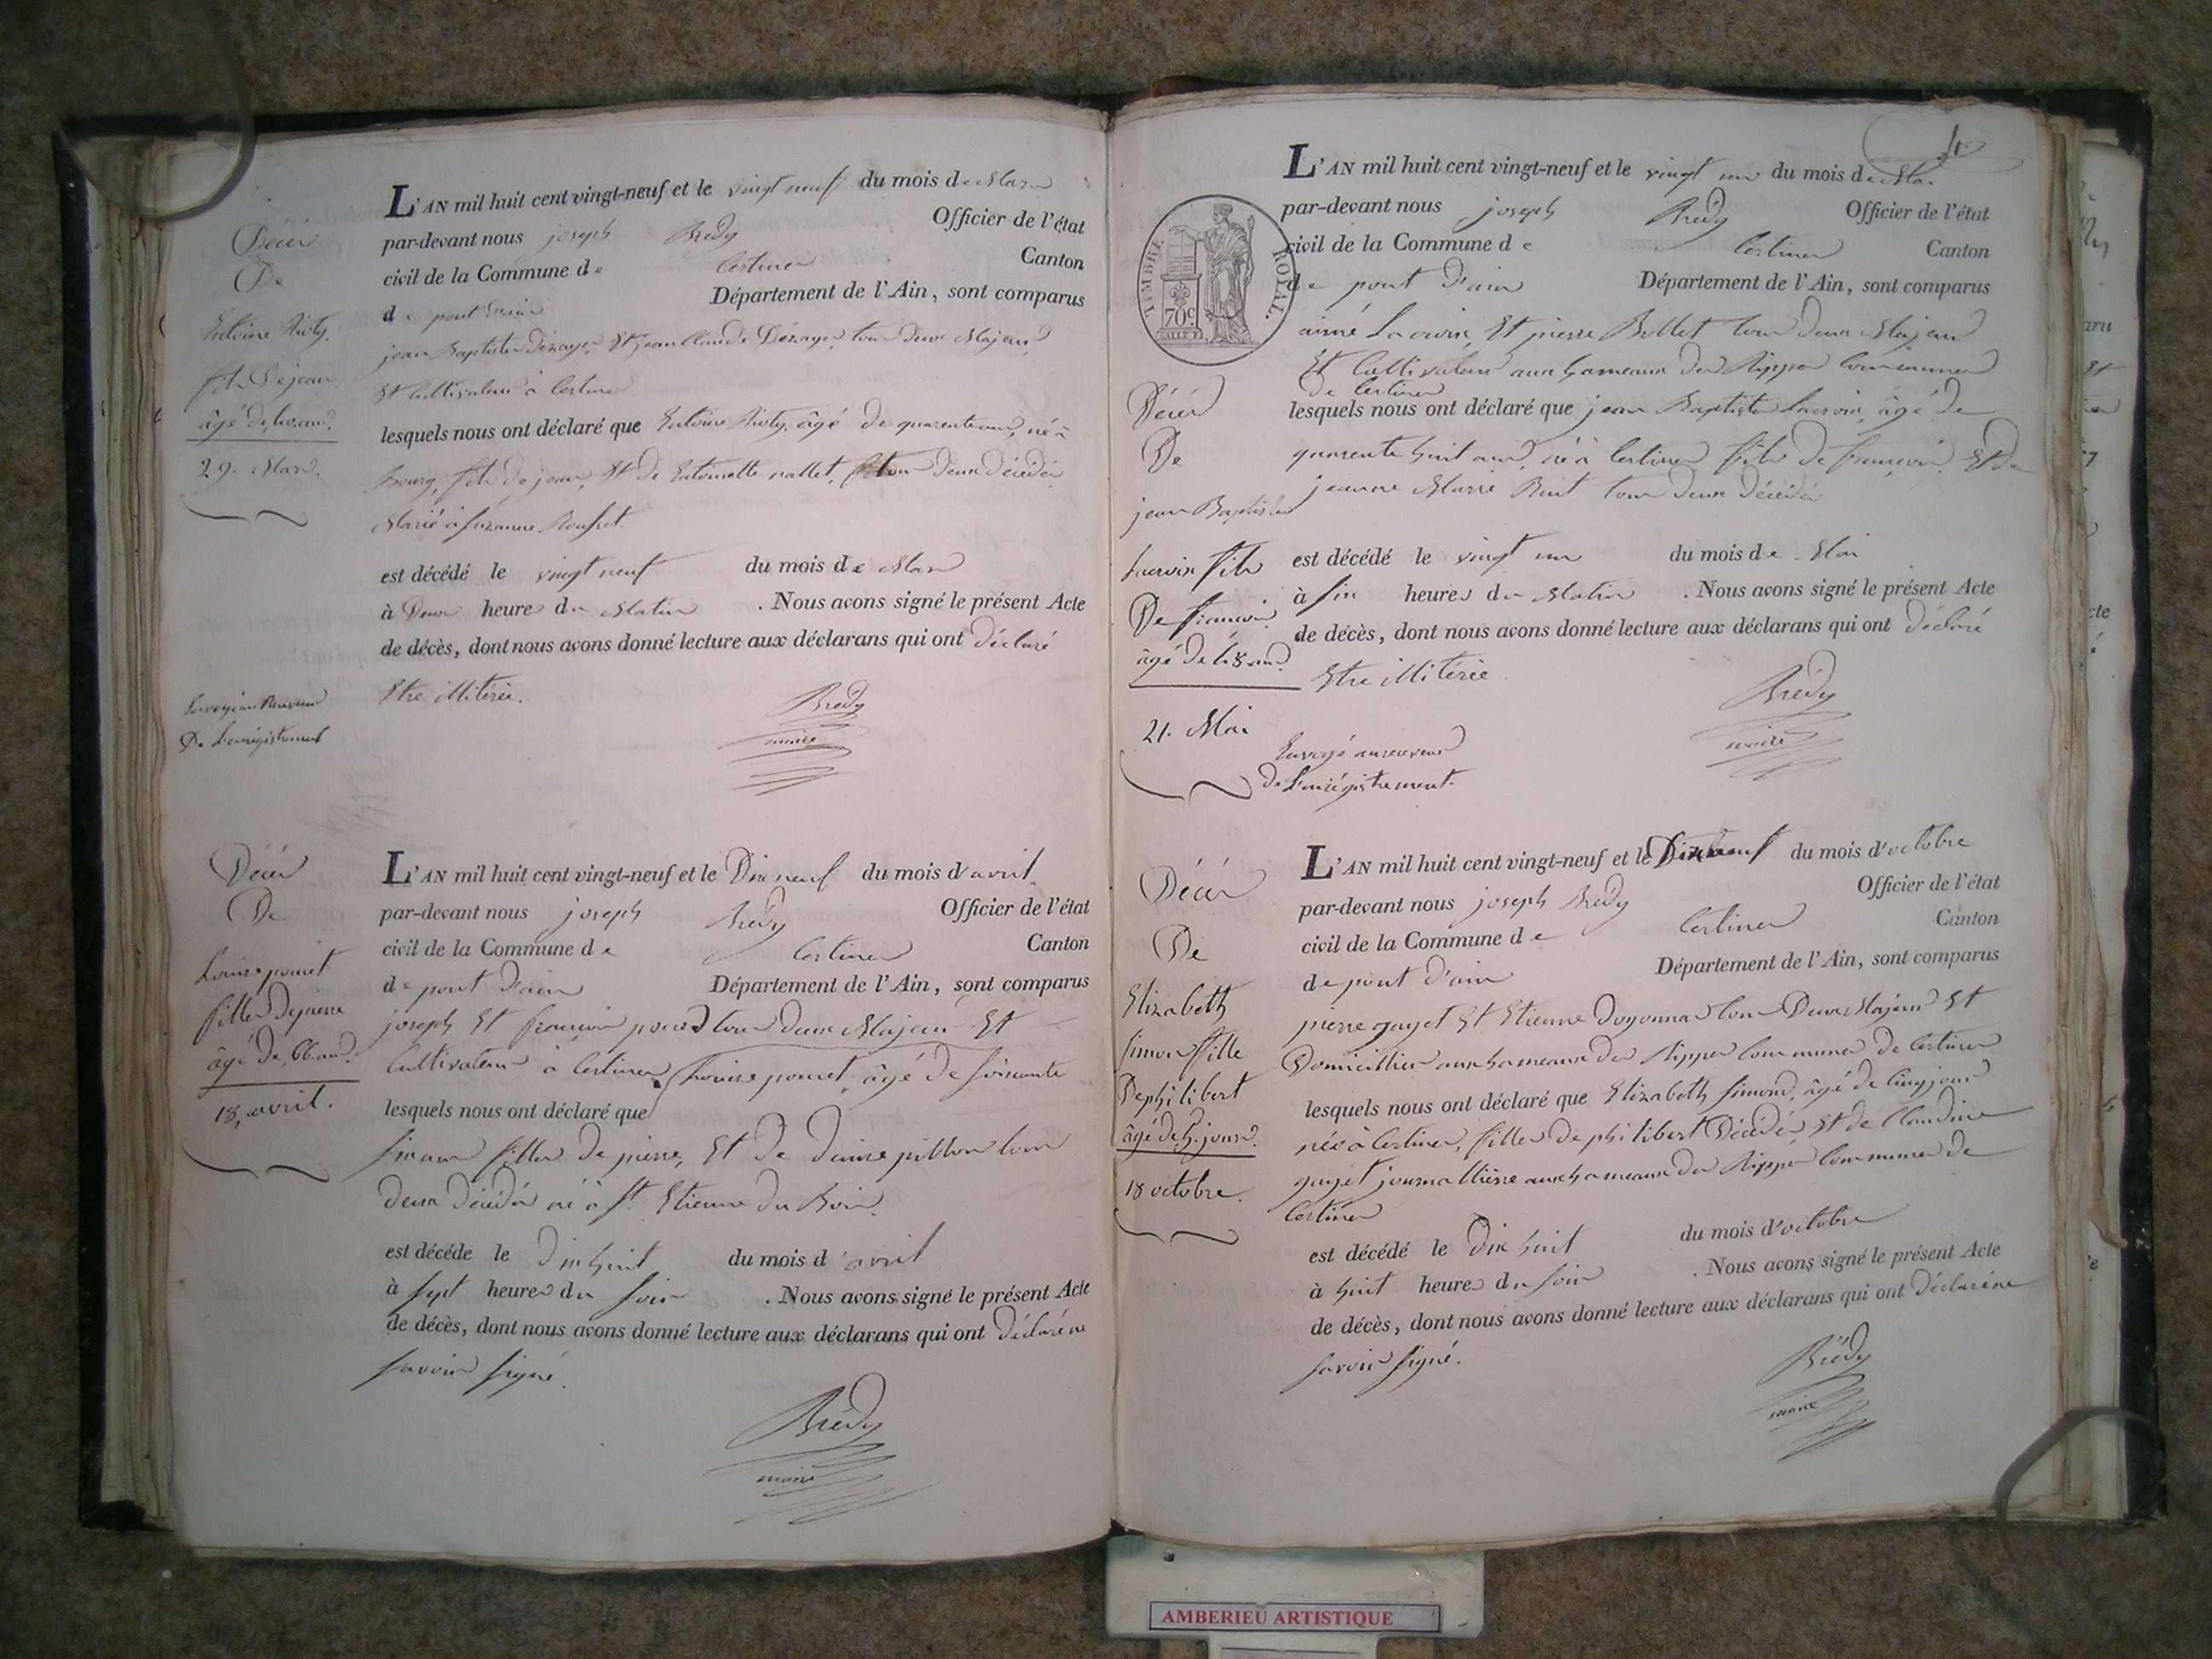 L'AN mil huit cent vingt-neuf et le vingt neuf du mois de Mars
par-devant nous joseph Bredy Officier de l'état
civil de la Commune de Certines Canton
de pont d'ain Département de l'Ain, sont comparus
jean Baptiste Dézayes, Et jean Claude Dézayes tous deux Majeurs
Et Cultivateurs à Certines
lesquels nous ont déclaré que Antoine âgé de quarente ans, né à
Bourg, fils de jean, Et de Antoinette nallet, tous deux décédés
Marié à Suzanne
est décédé le vingt neuf du mois de Mars
à Deux heures du Matin . Nous avons signé le présent Acte
de décès, dont nous avons donné lecture aux déclarans qui ont déclaré
Etre illitérés.
Bredy
maire
Décès
De
Antoine
fils De jean
âgé de 40 ans.
29. Mars.
Envoyé au Receveur
De L'enregistrement
L'AN mil huit cent vingt-neuf et le Dix neuf du mois d'avril
par-devant nous joseph Bredy Officier de l'état
civil de la Commune de Certines Canton
de pont d'ain Département de l'Ain, sont comparus
joseph Et françois tous deux Majeurs Et
Cultivateurs à Certines
lesquels nous ont déclaré que Louise poncet, âgé de soixante
six ans fille de pierre, Et de Denise pillon tous
deux décédés né à St. Etienne du Bois.
est décédé le Dix huit du mois d'avril
à sept heures du soir . Nous avons signé le présent Acte
de décès, dont nous avons donné lecture aux déclarans qui ont Déclaré ne
savoir signé.
Bredy
maire
Décès
De
Louise poncet
fille De pierre
âgé De 66 ans.
18, avril.
L'AN mil huit cent vingt-neuf et le vingt un du mois de Mai
par-devant nous joseph Bredy Officier de l'état
civil de la Commune de Certines Canton
de pont d'ain Département de l'Ain, sont comparus
aimé Lacroix, Et pierre Bollet tous deux Majeurs
Et Cultivateurs aux hameaux des Rippes Commune
de Certines
lesquels nous ont déclaré que jean Baptiste Lacroix, âgé de
quarente huit ans, né à Certines fils de françois Et de
jeanne Marie tous deux Décédés
est décédé le vingt un du mois de Mai
à six heures du Matin . Nous avons signé le présent Acte
de décès, dont nous avons donné lecture aux déclarans qui ont déclaré
Etre illitérés.
Bredy
maire
TIMBRE ROYAL.
70c
Décès
De
jean Baptiste
Lacroix fils
De françois
âgé de 48 ans.
21. Mai
Envoyé au receveur
de L'enrégistrement.
L'AN mil huit cent vingt-neuf et le Dix neuf du mois d'octobre
par-devant nous joseph Bredy Officier de l'état
civil de la Commune de Certines Canton
de pont d'ain Département de l'Ain, sont comparus
pierre gayet Et Etienne Doyonnas tous Deux Majeurs Et
Domiciliés aux hameaux des Rippes Commune de Certines
lesquels nous ont déclaré que Elizabeth Simond, âgé de Cinq jours
née à Certines, fille De philibert Décédé Et de Claudine
gayet journallière aux hameaux des Rippes Commune de
Certines
est décédé le Dix huit du mois d'octobre
à huit heures du soir . Nous avons signé le présent Acte
de décès, dont nous avons donné lecture aux déclarans qui ont Déclaré ne
savoir signé.
Bredy
maire
Décès
De
Elizabeth
Simon fille
De philibert
âgé de 5. jours.
18 octobre.
AMBERIEU ARTISTIQUE